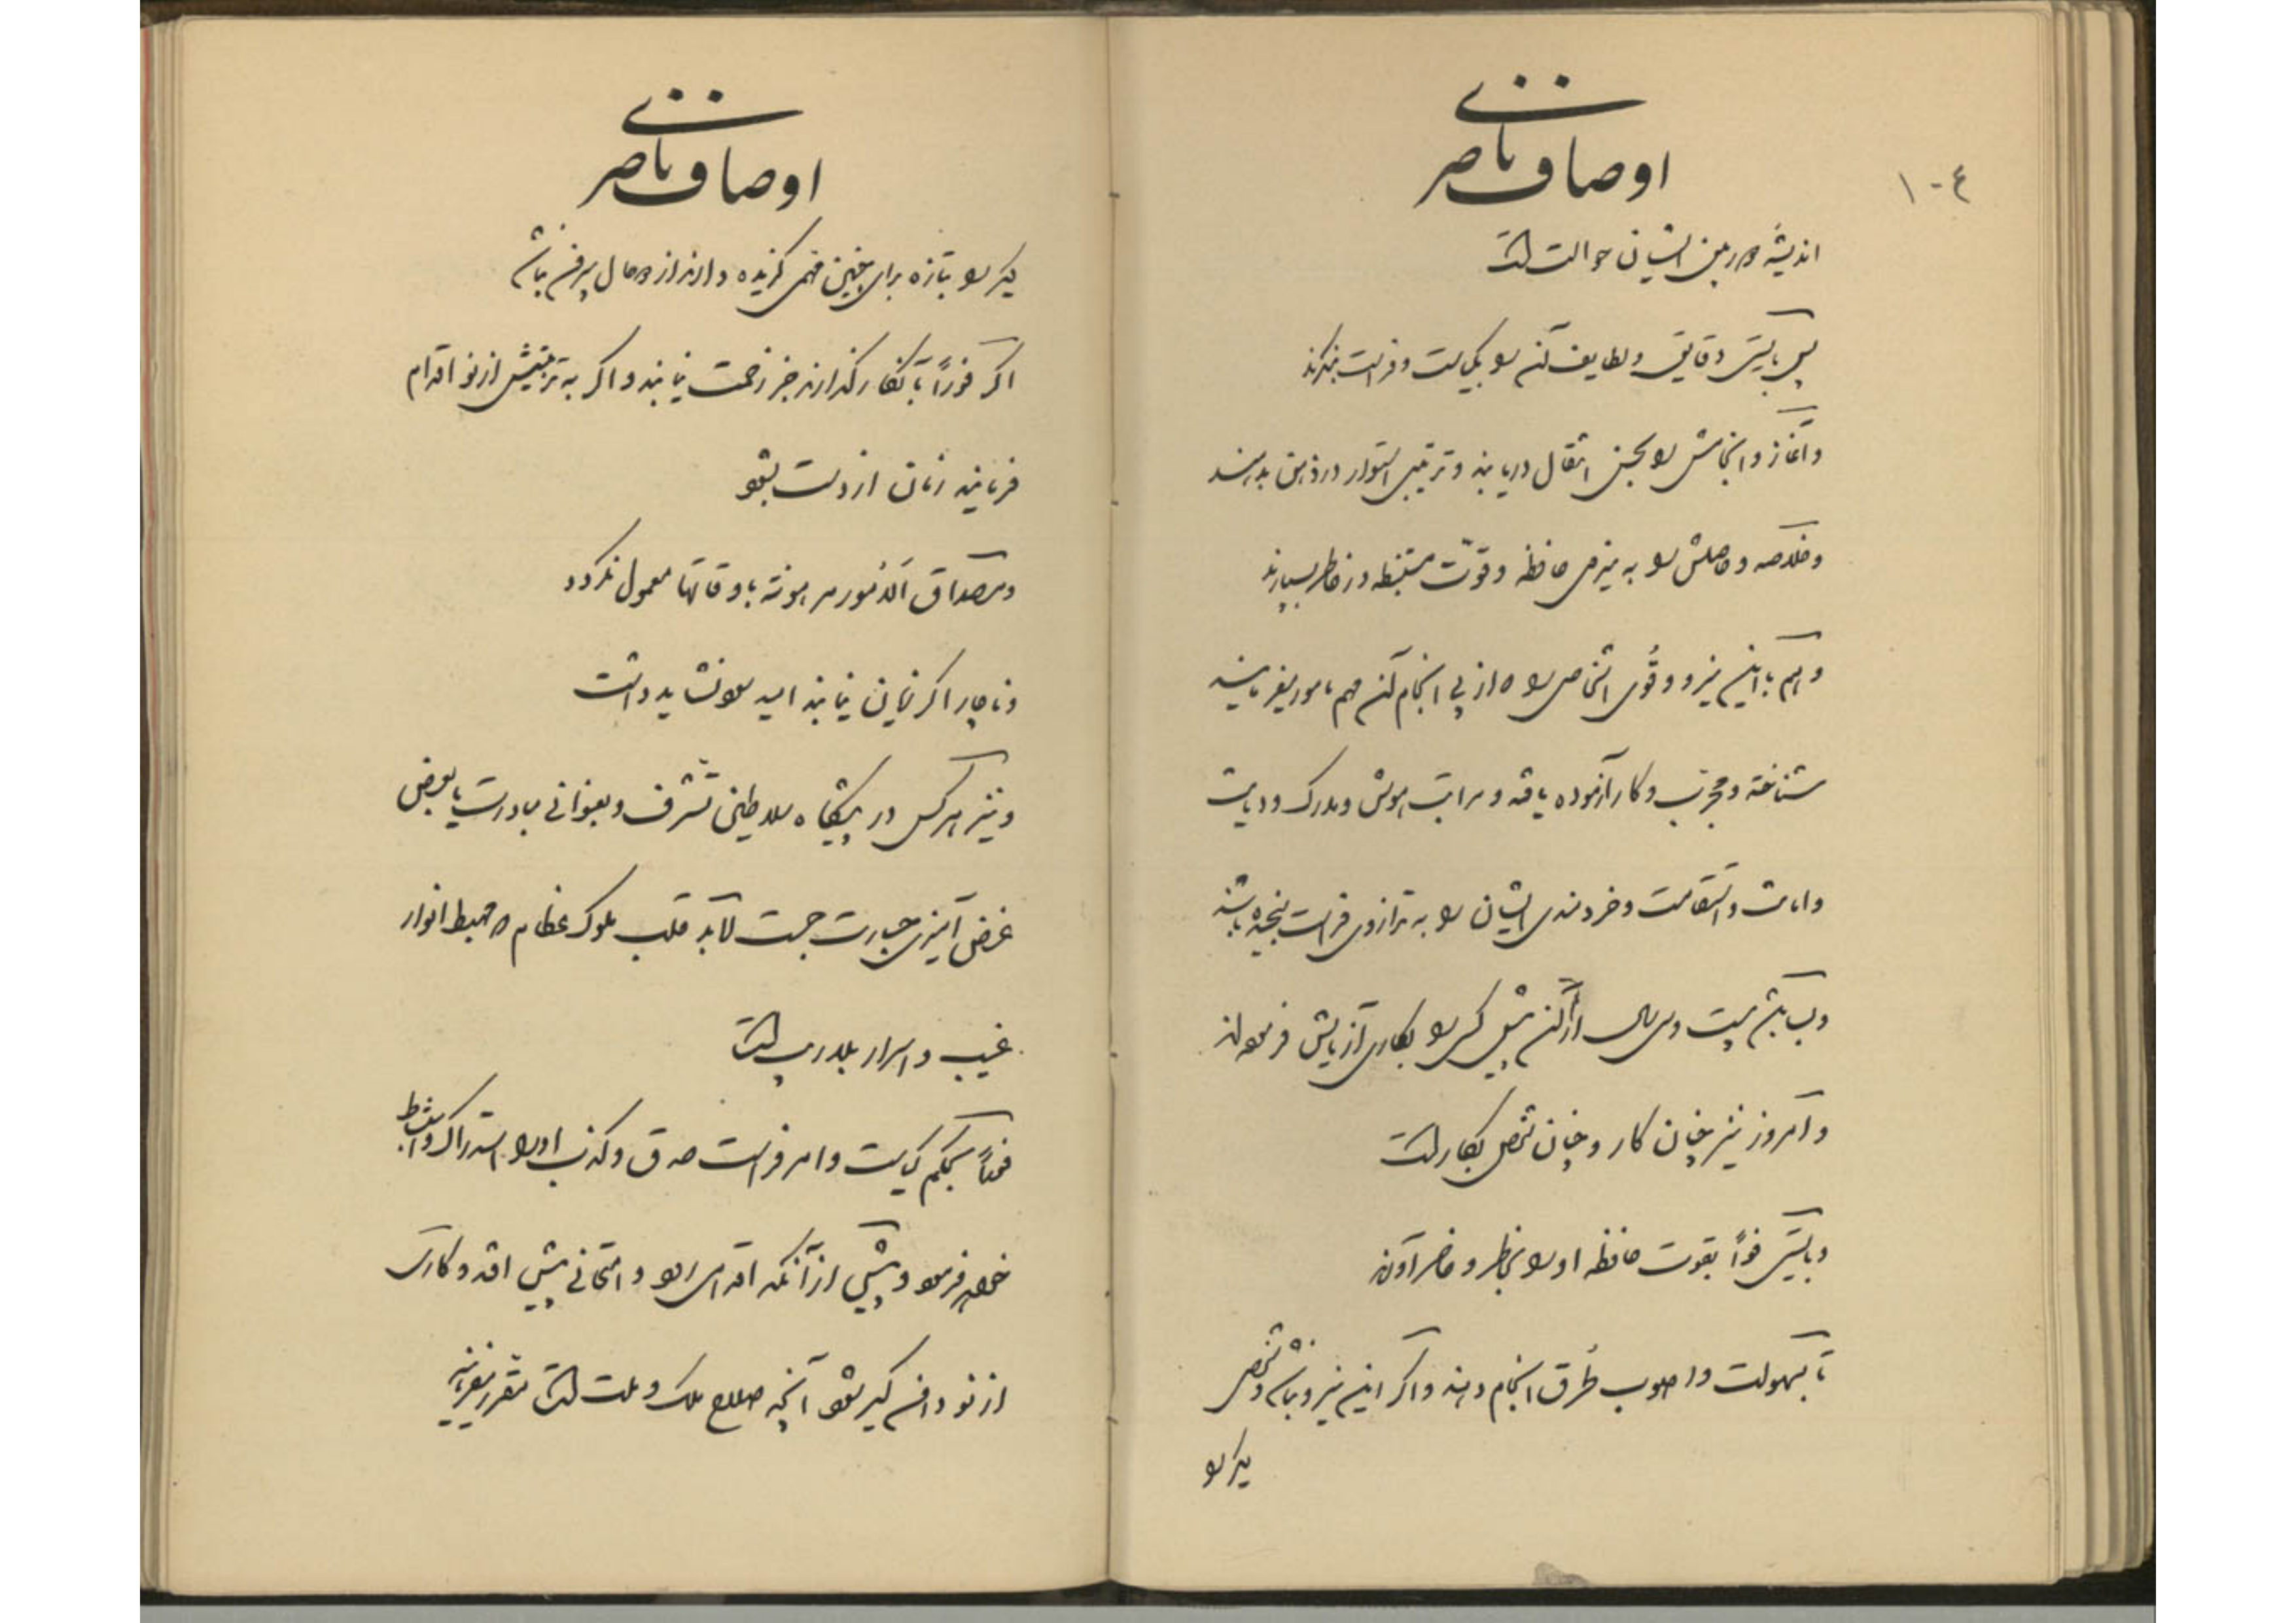 ۱۰۴
اوصاف ناصری
اندیشه در بین ایشان حوالت است
پس بایستی دقایق و لطایف آن را بکیاست و فراست بنگرند
و آغاز و انجامش را بحسن انتقال دریابند و ترتیبی استوار در ذهن بدهند
و خلاصه و حاصلش را به نیروی حافظه و قوّت مستنبطه در خاطر بسپارند
و هم با این نیرو و قُوی اشخاصی را که از پی انجام آن مهم مامور میفرمایند
شناخته و مجرّب و کار آزموده یافته و مراتب هوش و مدرک و دیانت
و امانت و استقامت و خردمندی ایشان را به ترازوی فراست سنجیده باشند
و بسا باشد بیست و سی سال از آن پیش کسی را بکاری آزمایش فرموده‌اند
و امروز نیز چنان کار و چنان شخص بکار است
و بایستی فوراً بقوت حافظه او را بخاطر و حاضر آورند
تا بسهولت و اصوب طُرق انجام دهند و اگر این نیرو نباشد و شخصی
دیگر را
اوصاف ناصری
دیگر را بتازه برای چنین مهمی گزیده دارند از دو حال بیرون نباشد
اگر فوراً بآنکار گذارند جز زحمت نیابند و اگر به تربیتش از نو اقدام
فرمایند زمان از دست بشود
و مصداق الامور مرهونة باوقاتها معمول نگردد
و ناچار اگر زیان نیابند امید سود نشاید داشت
و نیز هر کس در پیشگاه سلاطین تشرف و بعنوانی مبادرت یا بعرض
غرض آمیزی جسارت جست لابد قلب ملوک عظام که مهبط انوار
غیب و اسرار بلاریب است
فوراً بحکم کیاست و امر فراست صدق و کذب او را استدراک و استنباط
خواهد فرمود و پیش از آنکه اقدامی رود و امتحانی پیش افتد و کاری
از نو دامن گیر شود آنچه صلاح ملک و ملت است مقرر میفرمایند